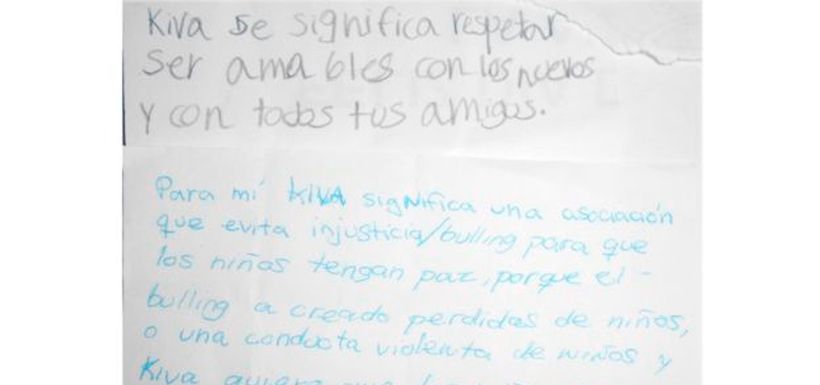 Kiva se significa respetar
ser amables con los nuevos
y con todos tus amigos.
Para mi KIVA significa una asociación
que evita injusticia/bulling para que
los niños tengan paz, porque el -
bulling a creado perdidas de niños,
o una conducta violenta de niños y
Kiva quiere que